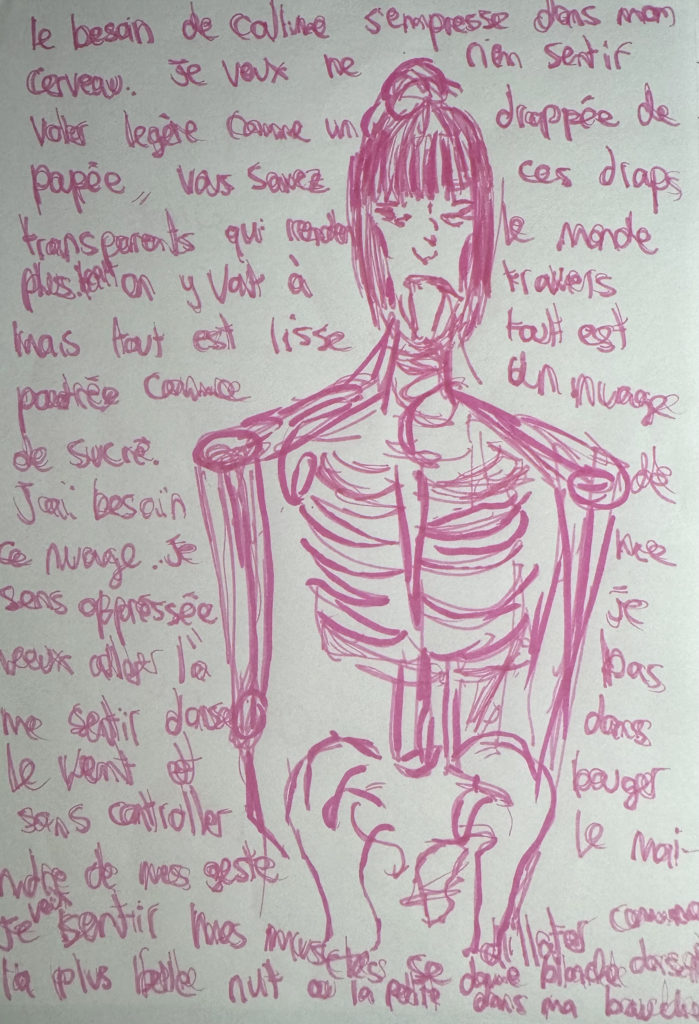 le besoin de calline s'empresse dans mon
cerveau. Je veux ne rien sentir
voler legère comme un drappée de
papée,, vous savez ces draps
transparents qui rendent le monde
plus. on y vait à travers
mais tout est lisse tout est
poudrée comme un nuage
de sucre.
J'ai besoin de
ce nuage. Je
sens oppressée je
veux aller là pas
me sentir danse dans
le vent et bouger
sans controller le moi-
ndre de mes geste
Je veux sentir mes muscles se dillater comme
la plus belle nuit ou la petite dame blanche
dans ma bouche